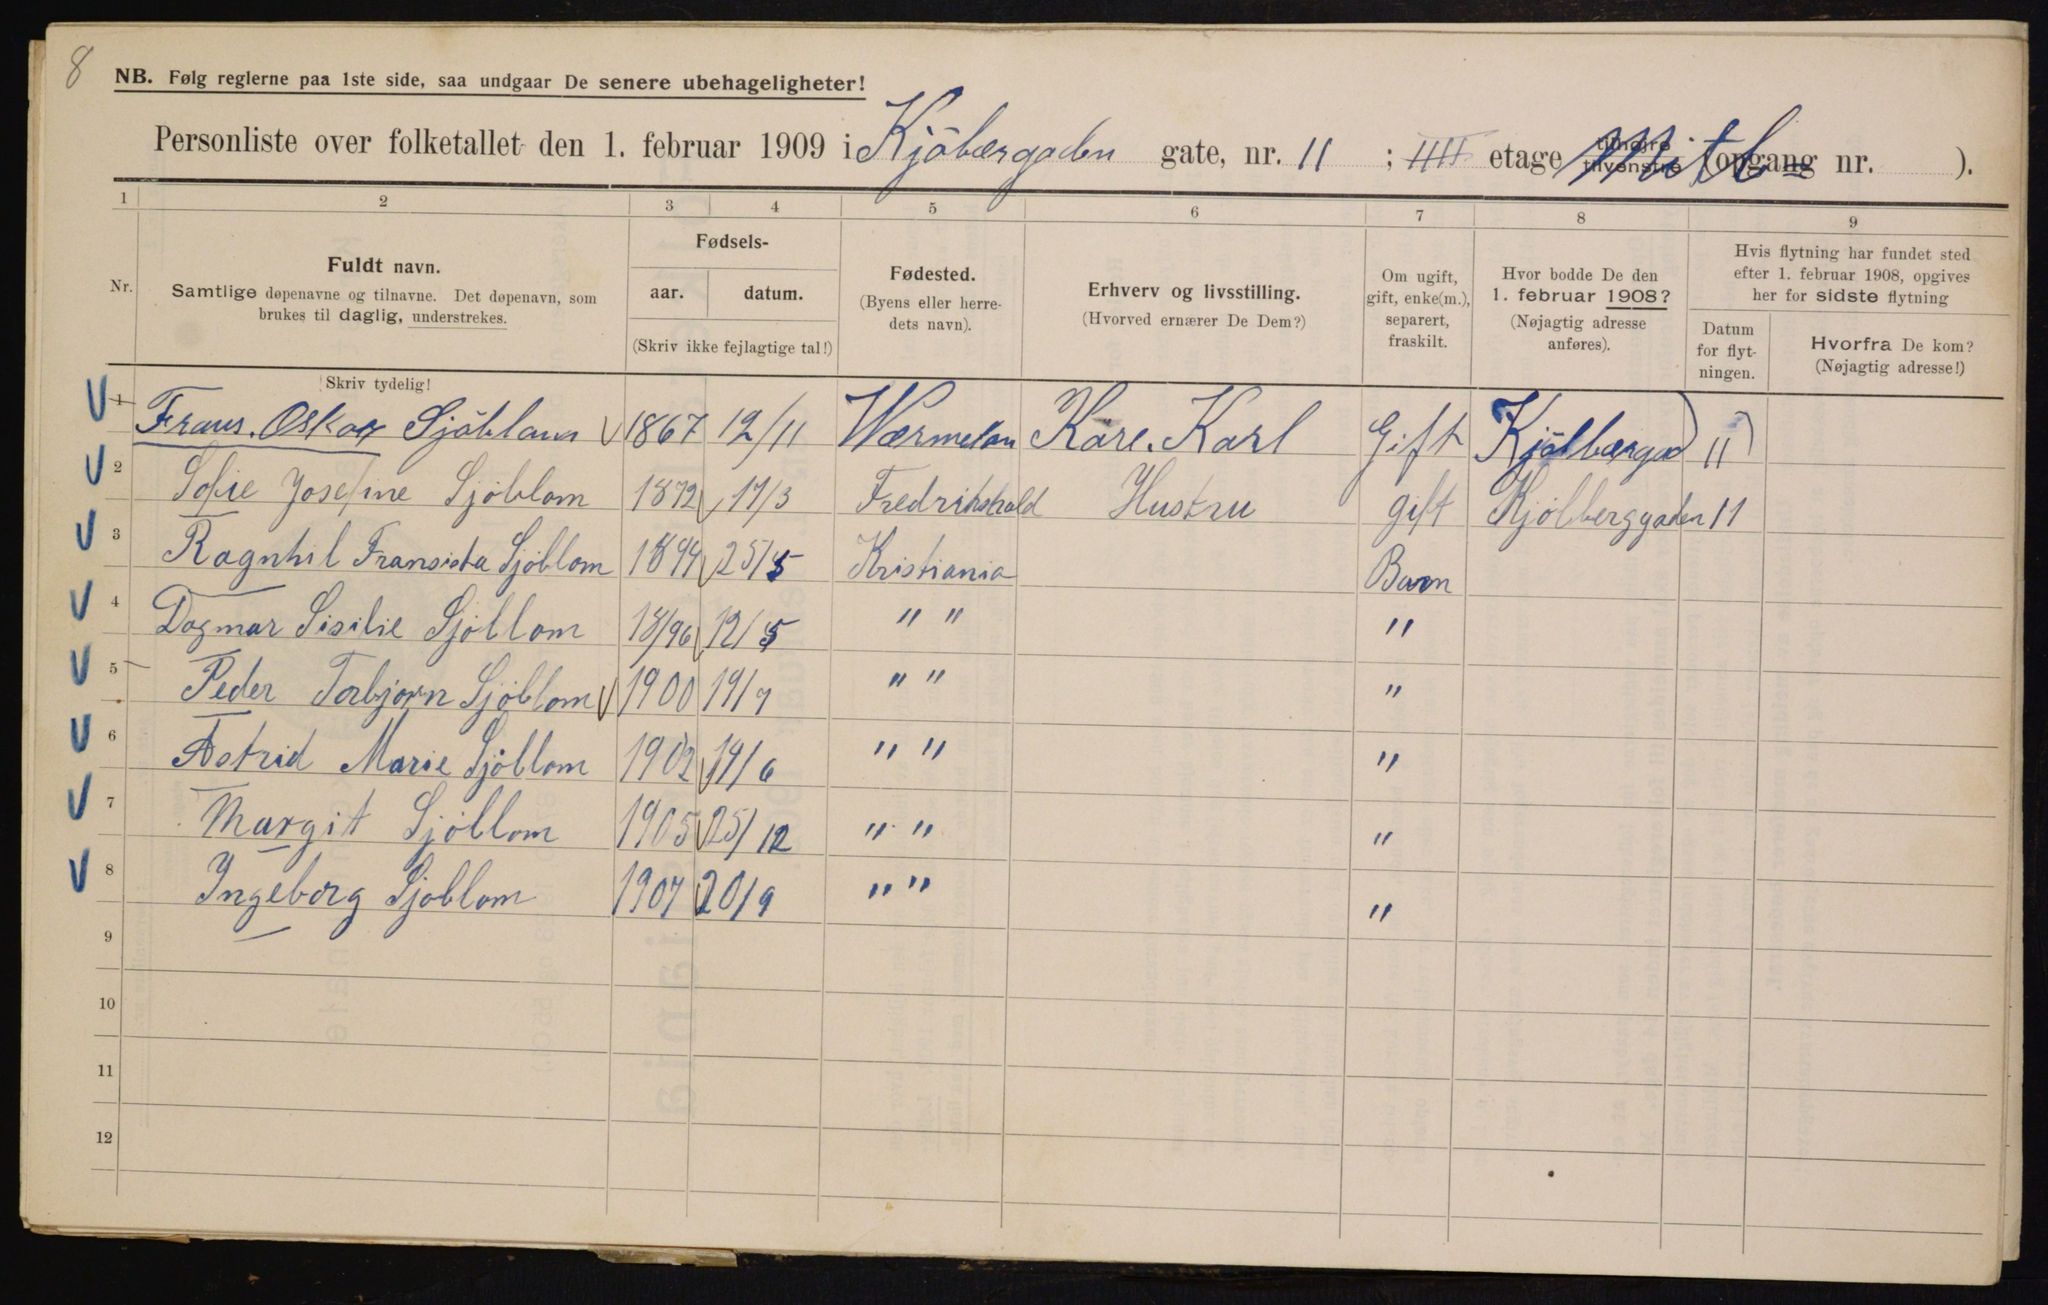 8
NB. Følg reglerne paa 1ste side, saa undgaar De senere ubehageligheter!
Personliste over folketallet den 1. februar 1909 i Kjöbærgaden gate, nr. 11 ; IIII etage tilhøjre tilvenstre (opgang nr. ).
1 2 3 4 5 6 7 8 9
Nr.
Fuldt navn.
Samtlige døpenavne og tilnavne. Det døpenavn, som
brukes til daglig, understrekes.
Skriv tydelig!
Fødsels-
aar. datum.
(Skriv ikke fejlagtige tal!)
Fødested.
(Byens eller herre-
dets navn).
Erhverv og livsstilling.
(Hvorved ernærer De Dem?)
Om ugift,
gift, enke(m.),
separert,
fraskilt.
Hvor bodde De den
1. februar 1908?
(Nøjagtig adresse
anføres).
Hvis flytning har fundet sted
efter 1. februar 1908, opgives
her for sidste flytning
Datum
for flyt-
ningen.
Hvorfra De kom?
(Nøjagtig adresse!)
1 Frans. Oskar Sjöblom 1867 12/11 Wærmelan Köre. Karl Gift Kjölbærgad 11
2 Sofie Josefine Sjöblom 1872 17/3 Fredrikshald Hustru gift Kjölberggaden 11
3 Ragnhil Fransiska Sjöblom 1894 25/5 Kristiania Barn
4 Dagmar Sisilie Sjöblom 18/96 12/5 " " "
5 Peder Torbjørn Sjöblom 1900 19/7 " " "
6 Astrid Marie Sjöblom 1902 14/6 " " "
7 Margit Sjöblom 1905 25/12 " " "
8 Ingeborg Sjöblom 1907 20/9 " " "
9
10
11
12